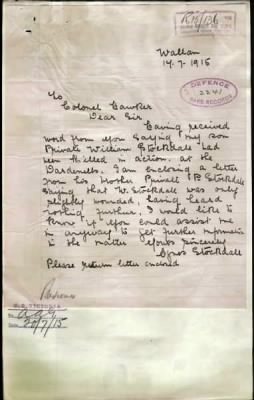 Wallan
14.7.1915
DEFENCE
2241
BASE RECORDS
To
Colonel Hawker
Dear Sir
Having received
word from you saying my son
Private William Stockdale had
been killed in action at the
Dardanells. I am enclosing a letter
from his brother Private P Stockdale
saying that W. Stockdale was only
slightly wounded, having heard
nothing further, I would like to
know if you could assist me
in anyway to get further information
in the matter Yours Sincerely
Stockdale
Please return letter enclosed
VICTORIA
No.
Date 20/7/15